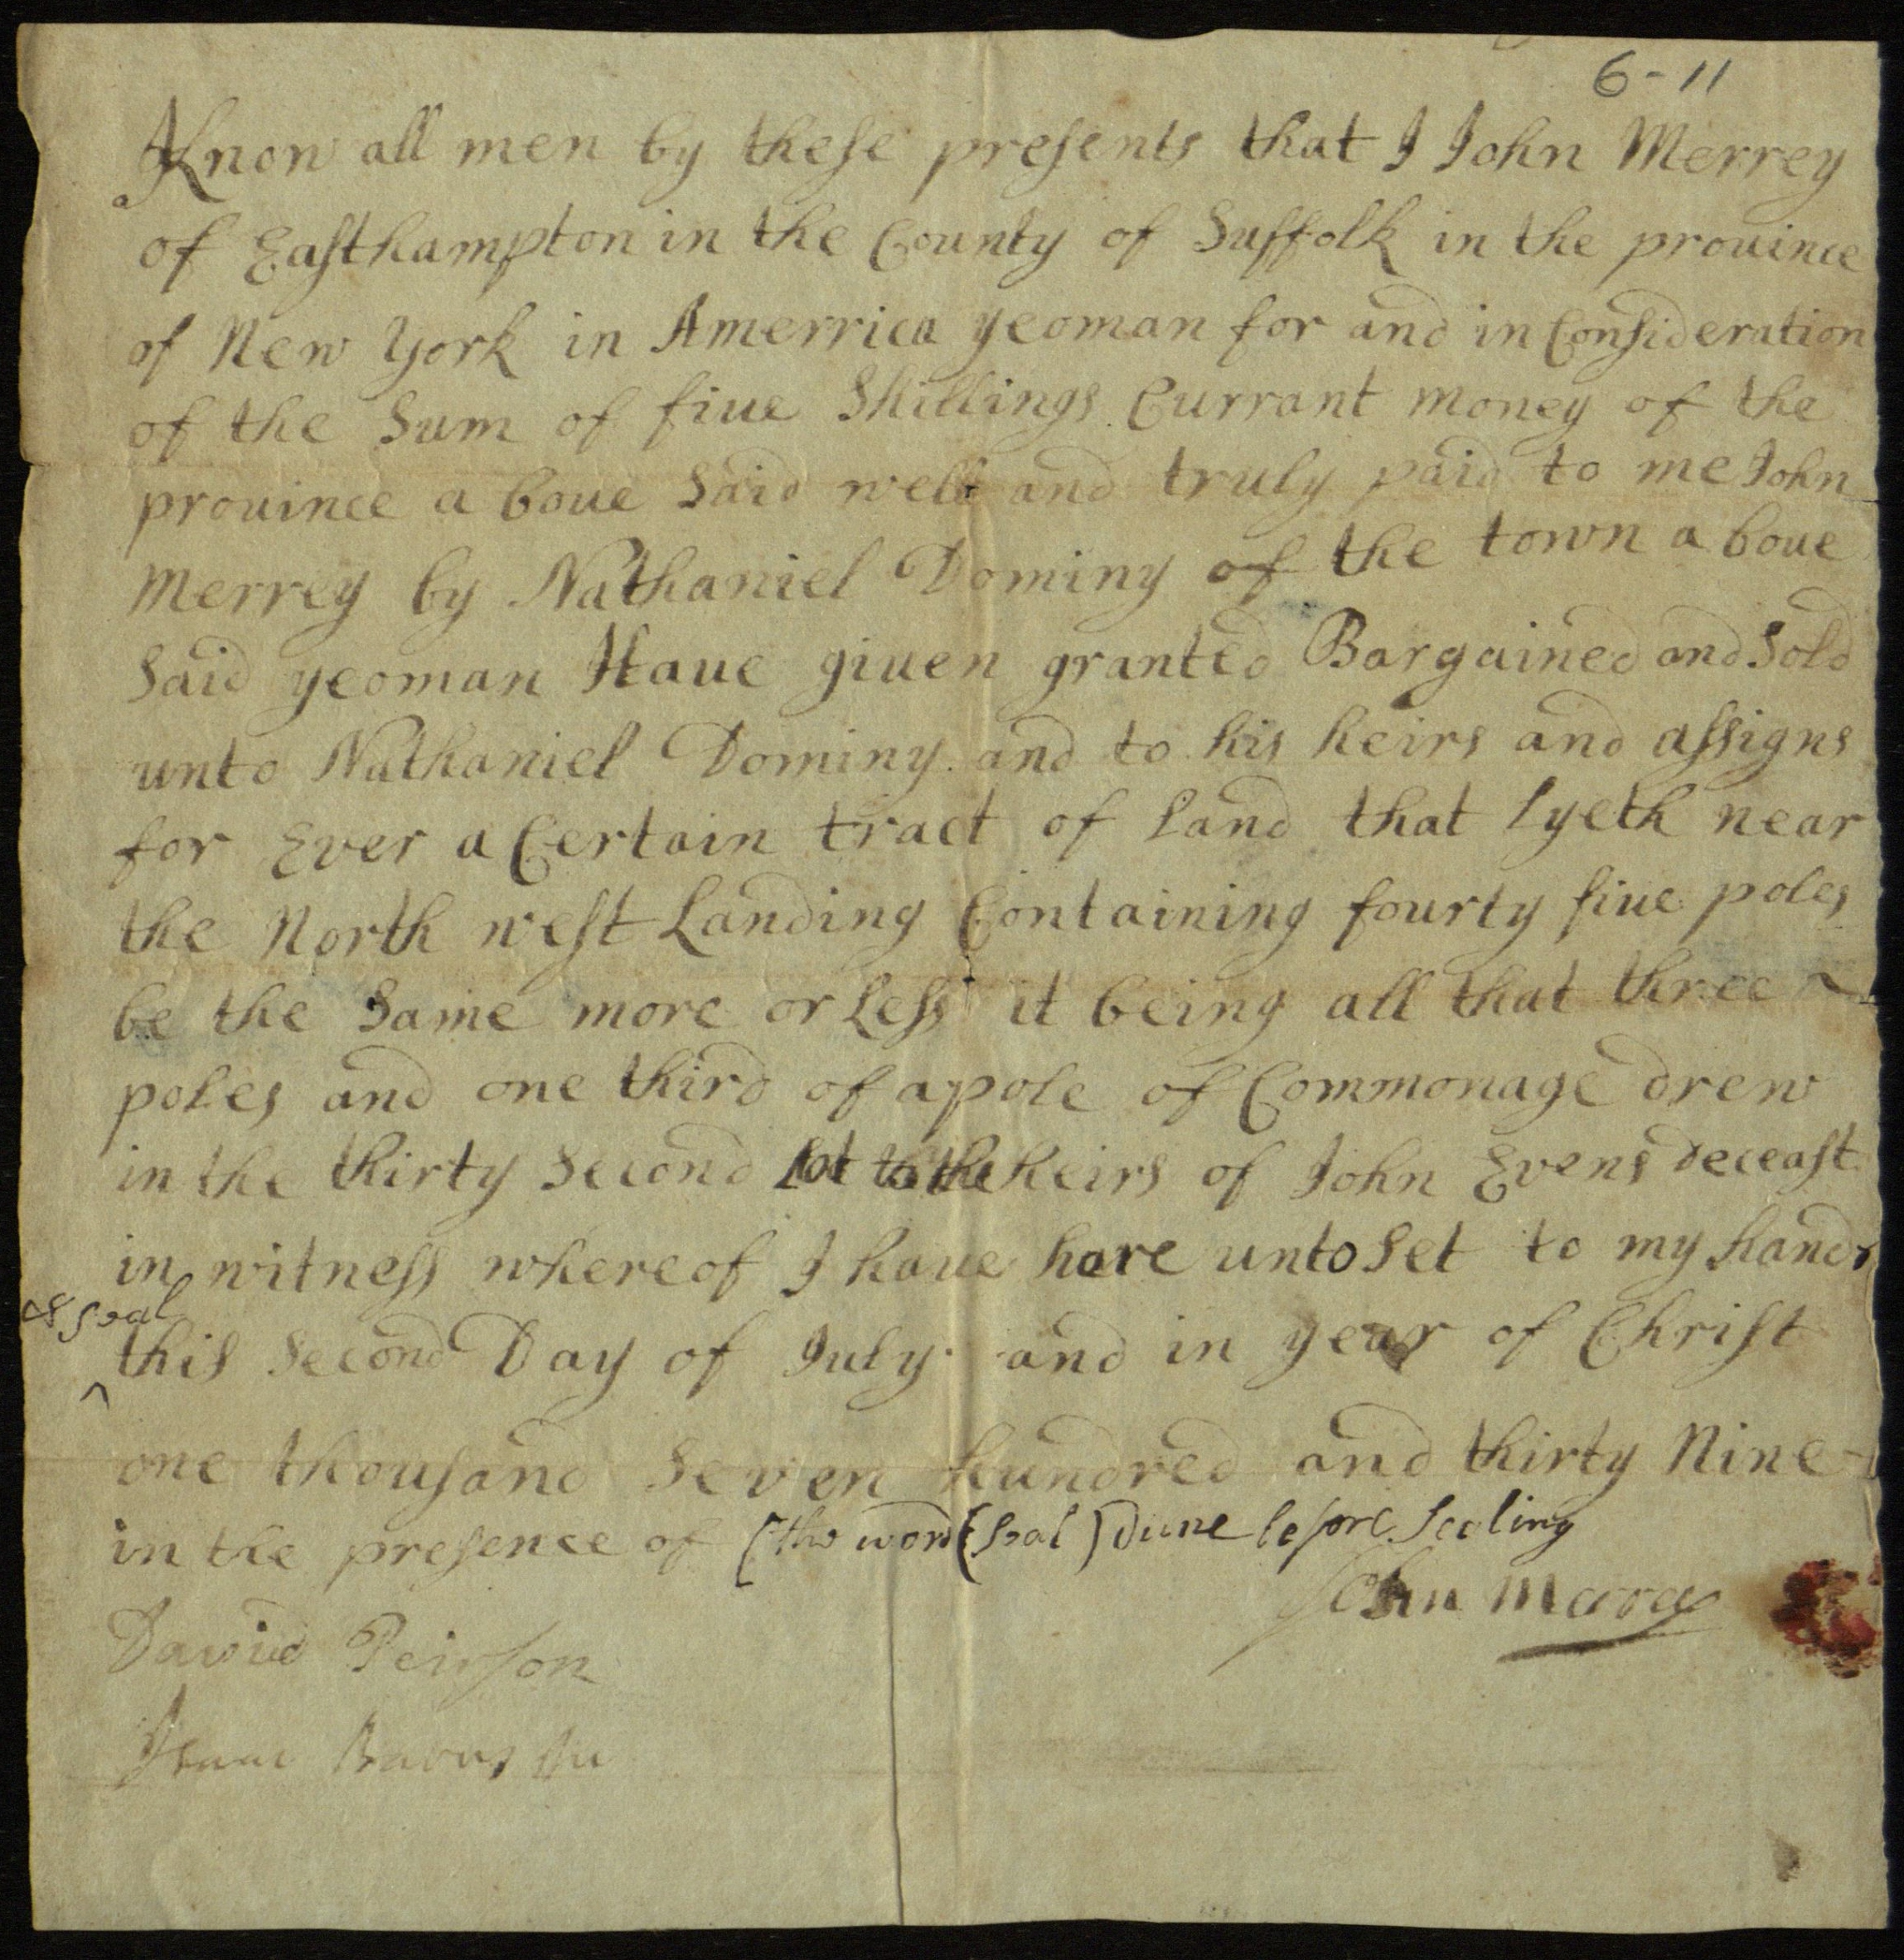 6-11
Know all men by these presents that I John Merrey
of Easthampton in the County of Suffolk in the prouince
of New York in Amerrica yeoman for and in Consideration
of the Sum of fiue Shillings Currant money of the
prouince a boue Said well and truly paid to me John
Merrey by Nathaniel Dominy of the town a boue
Said yeoman Haue giuen granted Bargained and Sold
unto Nathaniel Dominy and to his heirs and assigns
for Ever a Certain tract of land that lyeth near
the North west Landing Containing fourty fiue poles
be the Same more or Less it being all that three
poles and one third of a pole of Commonage drew
in the thirty Second lot to the heirs of John Evens deceast
in witness whereof I haue here unto Set to my hand
& seal
this Second Day of July and in year of Christ
one thousand Seven hundred and thirty Nine
in the presence of (the word (seal) before Sealing
John
David Peirson
Isaac